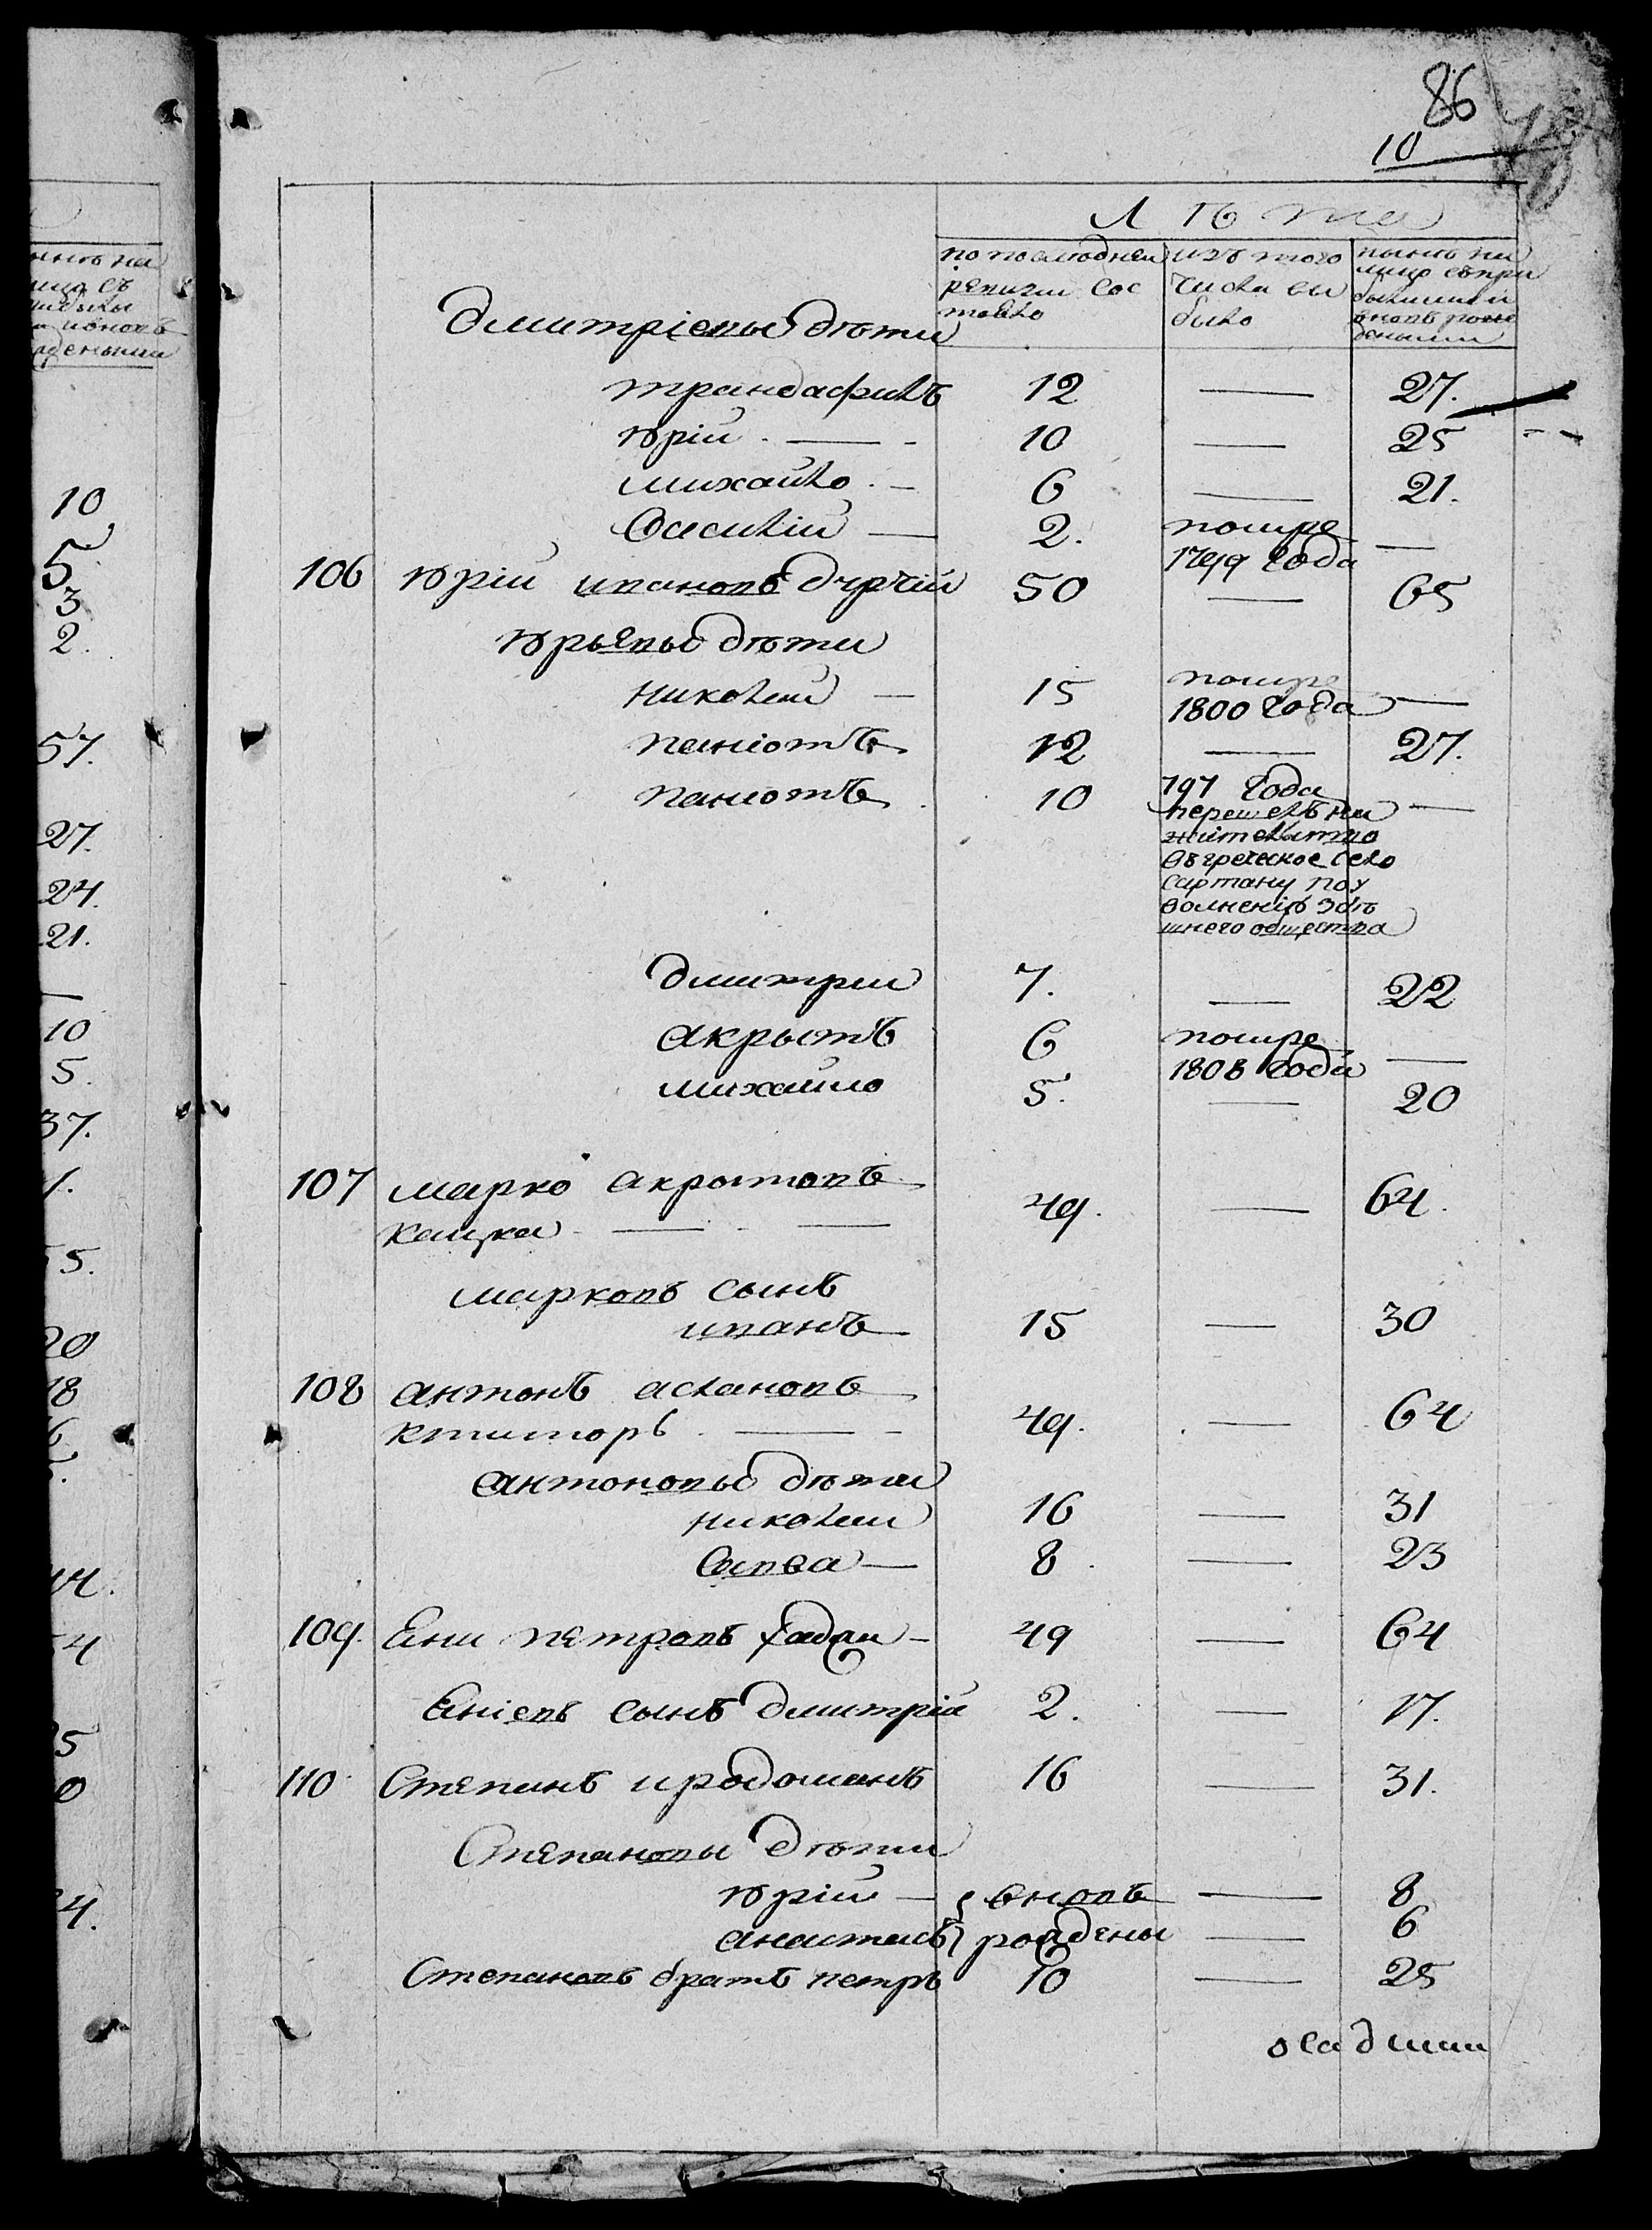 86
10
Лѣта
по последней
ревизии сос
тояло
изъ того
числа вы
было
нынѣ на
лицо съ при
былыми и
вновь рож
денными
Дмитріевы дѣти
трандафилъ 12 — 27.
юрій 10 — 25
михайло 6 — 21.
василій 2. помре
1799 года —
106 юрій ивановъ дурчій 50 — 65
юрьевы дѣти
николай 15 помре
1800 года —
паніотъ 12 — 27.
паніотъ 10 797 года —
перешелъ на
жительство
въ греческое село
сартану по у
волнению здѣ
шнего общества
дмитрии 7. — 22
акрытъ 6 помре
1808 года —
михаило 5. — 20
107 марко акрытовъ
кацка 49. — 64.
марковъ сынъ
иванъ 15 — 30
108 антонъ аслановъ
ктиторъ 49. — 64
антоновы дѣти
николаи 16 — 31
савва 8 — 23
109. Яни петровъ хаджи 49 — 64
Яніевъ сынъ дмитрій 2. — 17.
110 Степанъ продоманъ 16 — 31.
Степановы дѣти
юрій } вновь — 8
анастасъ } рождены — 6
Степановъ братъ петръ 10 — 25
10
5
3
2.
57.
27.
24.
21.
—
10
5.
37.